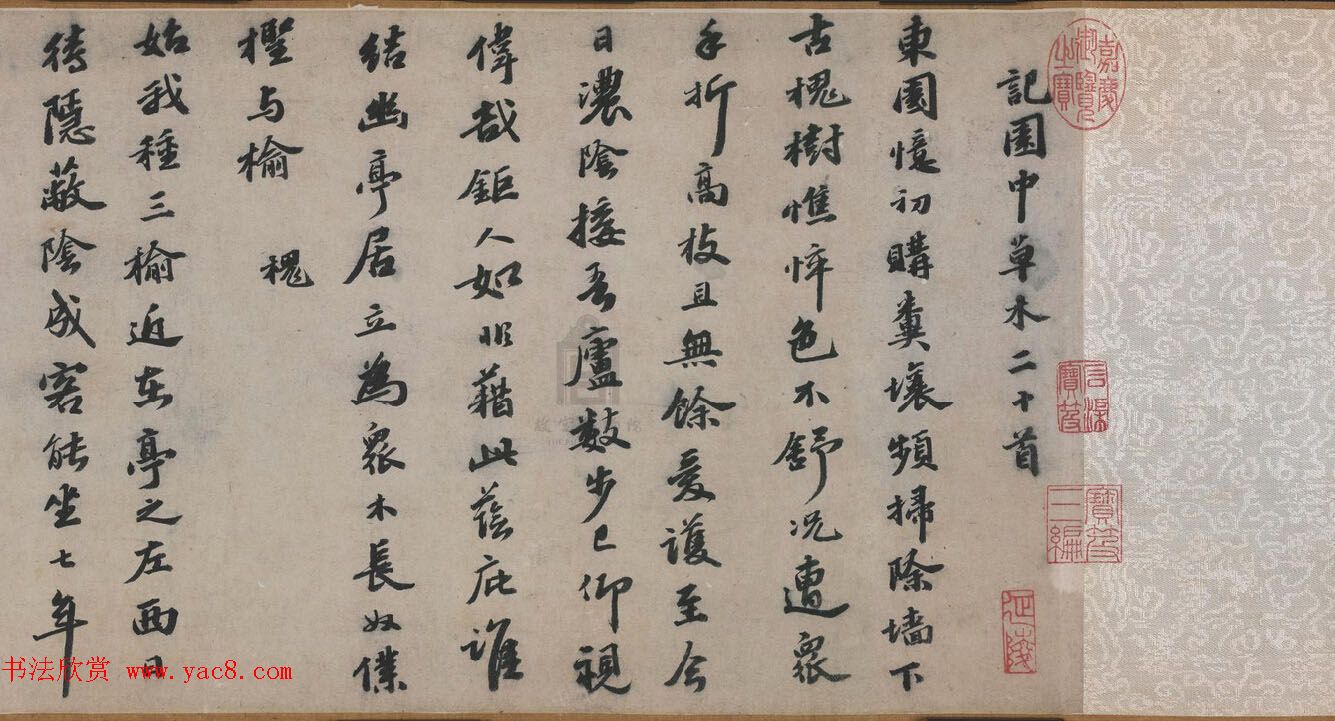 記園中草木二十首
東園憶初購糞壤頻掃除墻下
古槐樹憔悴色不舒況遭衆
手折高枝且無餘愛護至今
日濃陰接吾廬數步已仰視
偉哉鉅人如用藉此蔭庇誰
結幽亭居立為衆木長奴僕
檉与榆 槐
始我種三榆近在亭之左西日
待隱蔽陰成客能坐七年
嘉慶御覽之寶
石渠寶笈
寶笈三編
延陵
书法欣赏 www.yac8.com